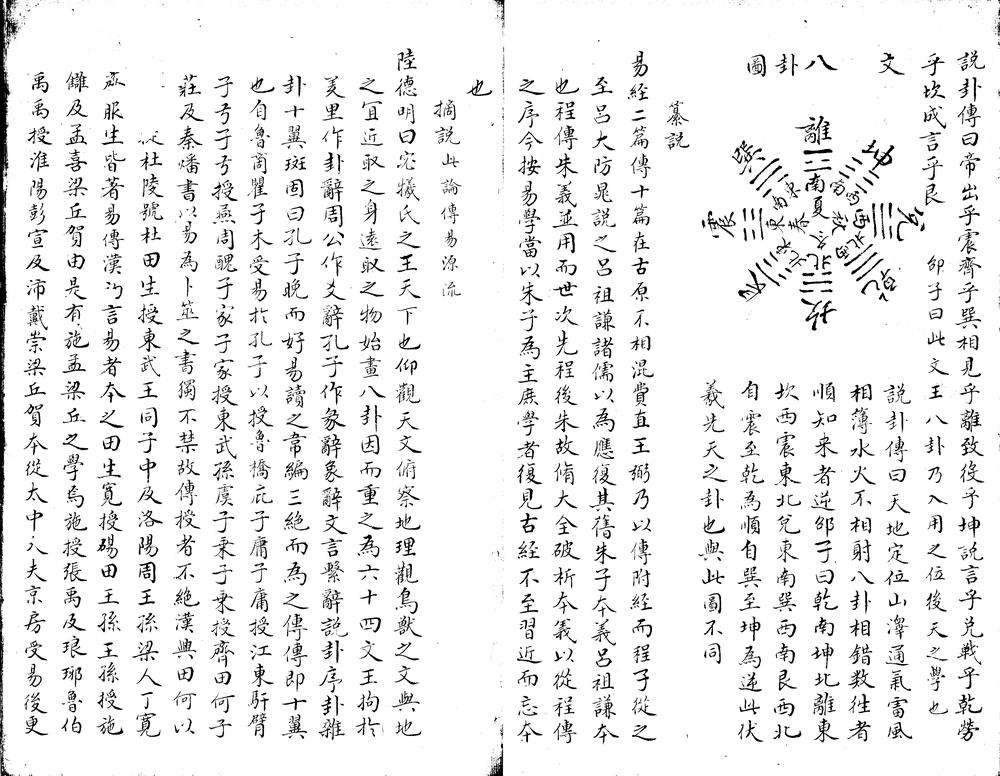 說卦傳曰帝出乎震齊乎巽相見乎離致役乎坤說言乎兌戰乎乾勞
乎坎成言乎艮　邵子曰此文王八卦乃入用之位後天之學也
文
八
卦
圖
離
南
夏
坤
兌
西
秋
乾
西北
坎
北
冬
艮
東北
震
東
春
巽
東南
說卦傳曰天地定位山澤通氣雷風
相薄水火不相射八卦相錯数徃者
順知来者逆邵子曰乾南坤北離東
坎西震東北兌東南巽西南艮西北
自震至乾為順自巽至坤為逆此伏
羲先天之卦也與此圖不同
纂說
易經二篇傳十篇在古原不相混費直王弼乃以傳附經而程子從之
至呂大防晁說之呂祖謙諸儒以為應復其舊朱子本義呂祖謙本
也程傳朱義並用而世次先程後朱故脩大全破析本義以從程傳
之序今按易學當以朱子為主庶學者復見古経不至習近而忘本
也
摘說此論傳易源流
陸德明曰宓犧氏之王天下也仰觀天文俯察地理觀鳥獸之文與地
之宜近取之身遠取之物始畫八卦因而重之為六十四文王拘於
羑里作卦辭周公作爻辭孔子作彖辭象辭文言繫辭說卦序卦雜
卦十翼班固曰孔子晚而好易讀之韋編三絕而為之傳傳即十翼
也自魯商瞿子木受易扵孔子以授魯橋庇子庸子庸授江東馯臂
子弓子弓授燕周醜子家子家授東武孫虞子乗子乗授齊田何子
莊及秦燔書以易為卜筮之書獨不禁故傳授者不絕漢興田何以
從杜陵號杜田生授東武王同子中及洛陽周王孫梁人丁寛
齊服生皆著易傳漢初言易者本之田生寛授碭田王孫王孫授施
讎及孟喜梁丘賀由是有施孟梁丘之學焉施授張禹及琅琊魯伯
禹禹授淮陽彭宣及沛戴崇梁丘賀本從太中大夫京房受易後更